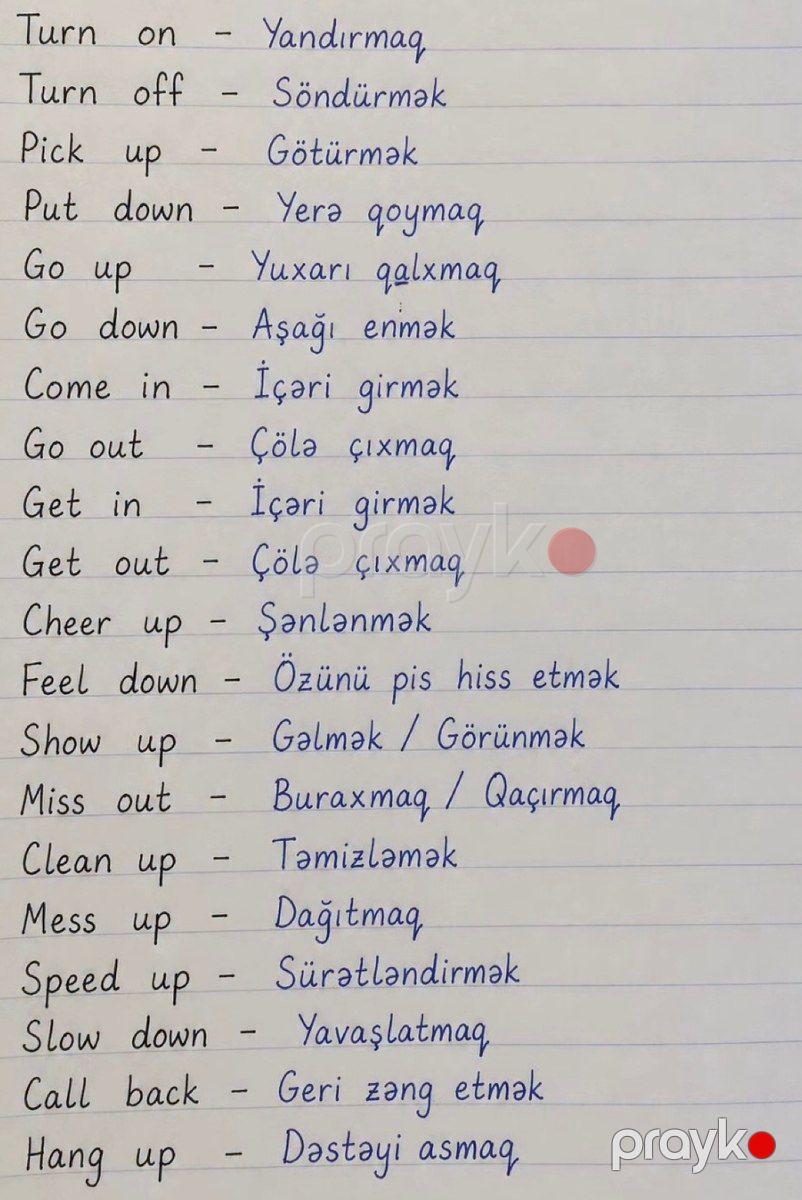 Turn on - Yandırmaq
Turn off - Söndürmək
Pick up - Götürmək
Put down - Yerə qoymaq
Go up - Yuxarı qalxmaq
Go down - Aşağı enmək
Come in - İçəri girmək
Go out - Çölə çıxmaq
Get in - İçəri girmək
Get out - Çölə çıxmaq
Cheer up - Şənlənmək
Feel down - Özünü pis hiss etmək
Show up - Gəlmək / Görünmək
Miss out - Buraxmaq / Qaçırmaq
Clean up - Təmizləmək
Mess up - Dağıtmaq
Speed up - Sürətləndirmək
Slow down - Yavaşlatmaq
Call back - Geri zəng etmək
Hang up - Dəstəyi asmaq
prayko
prayko